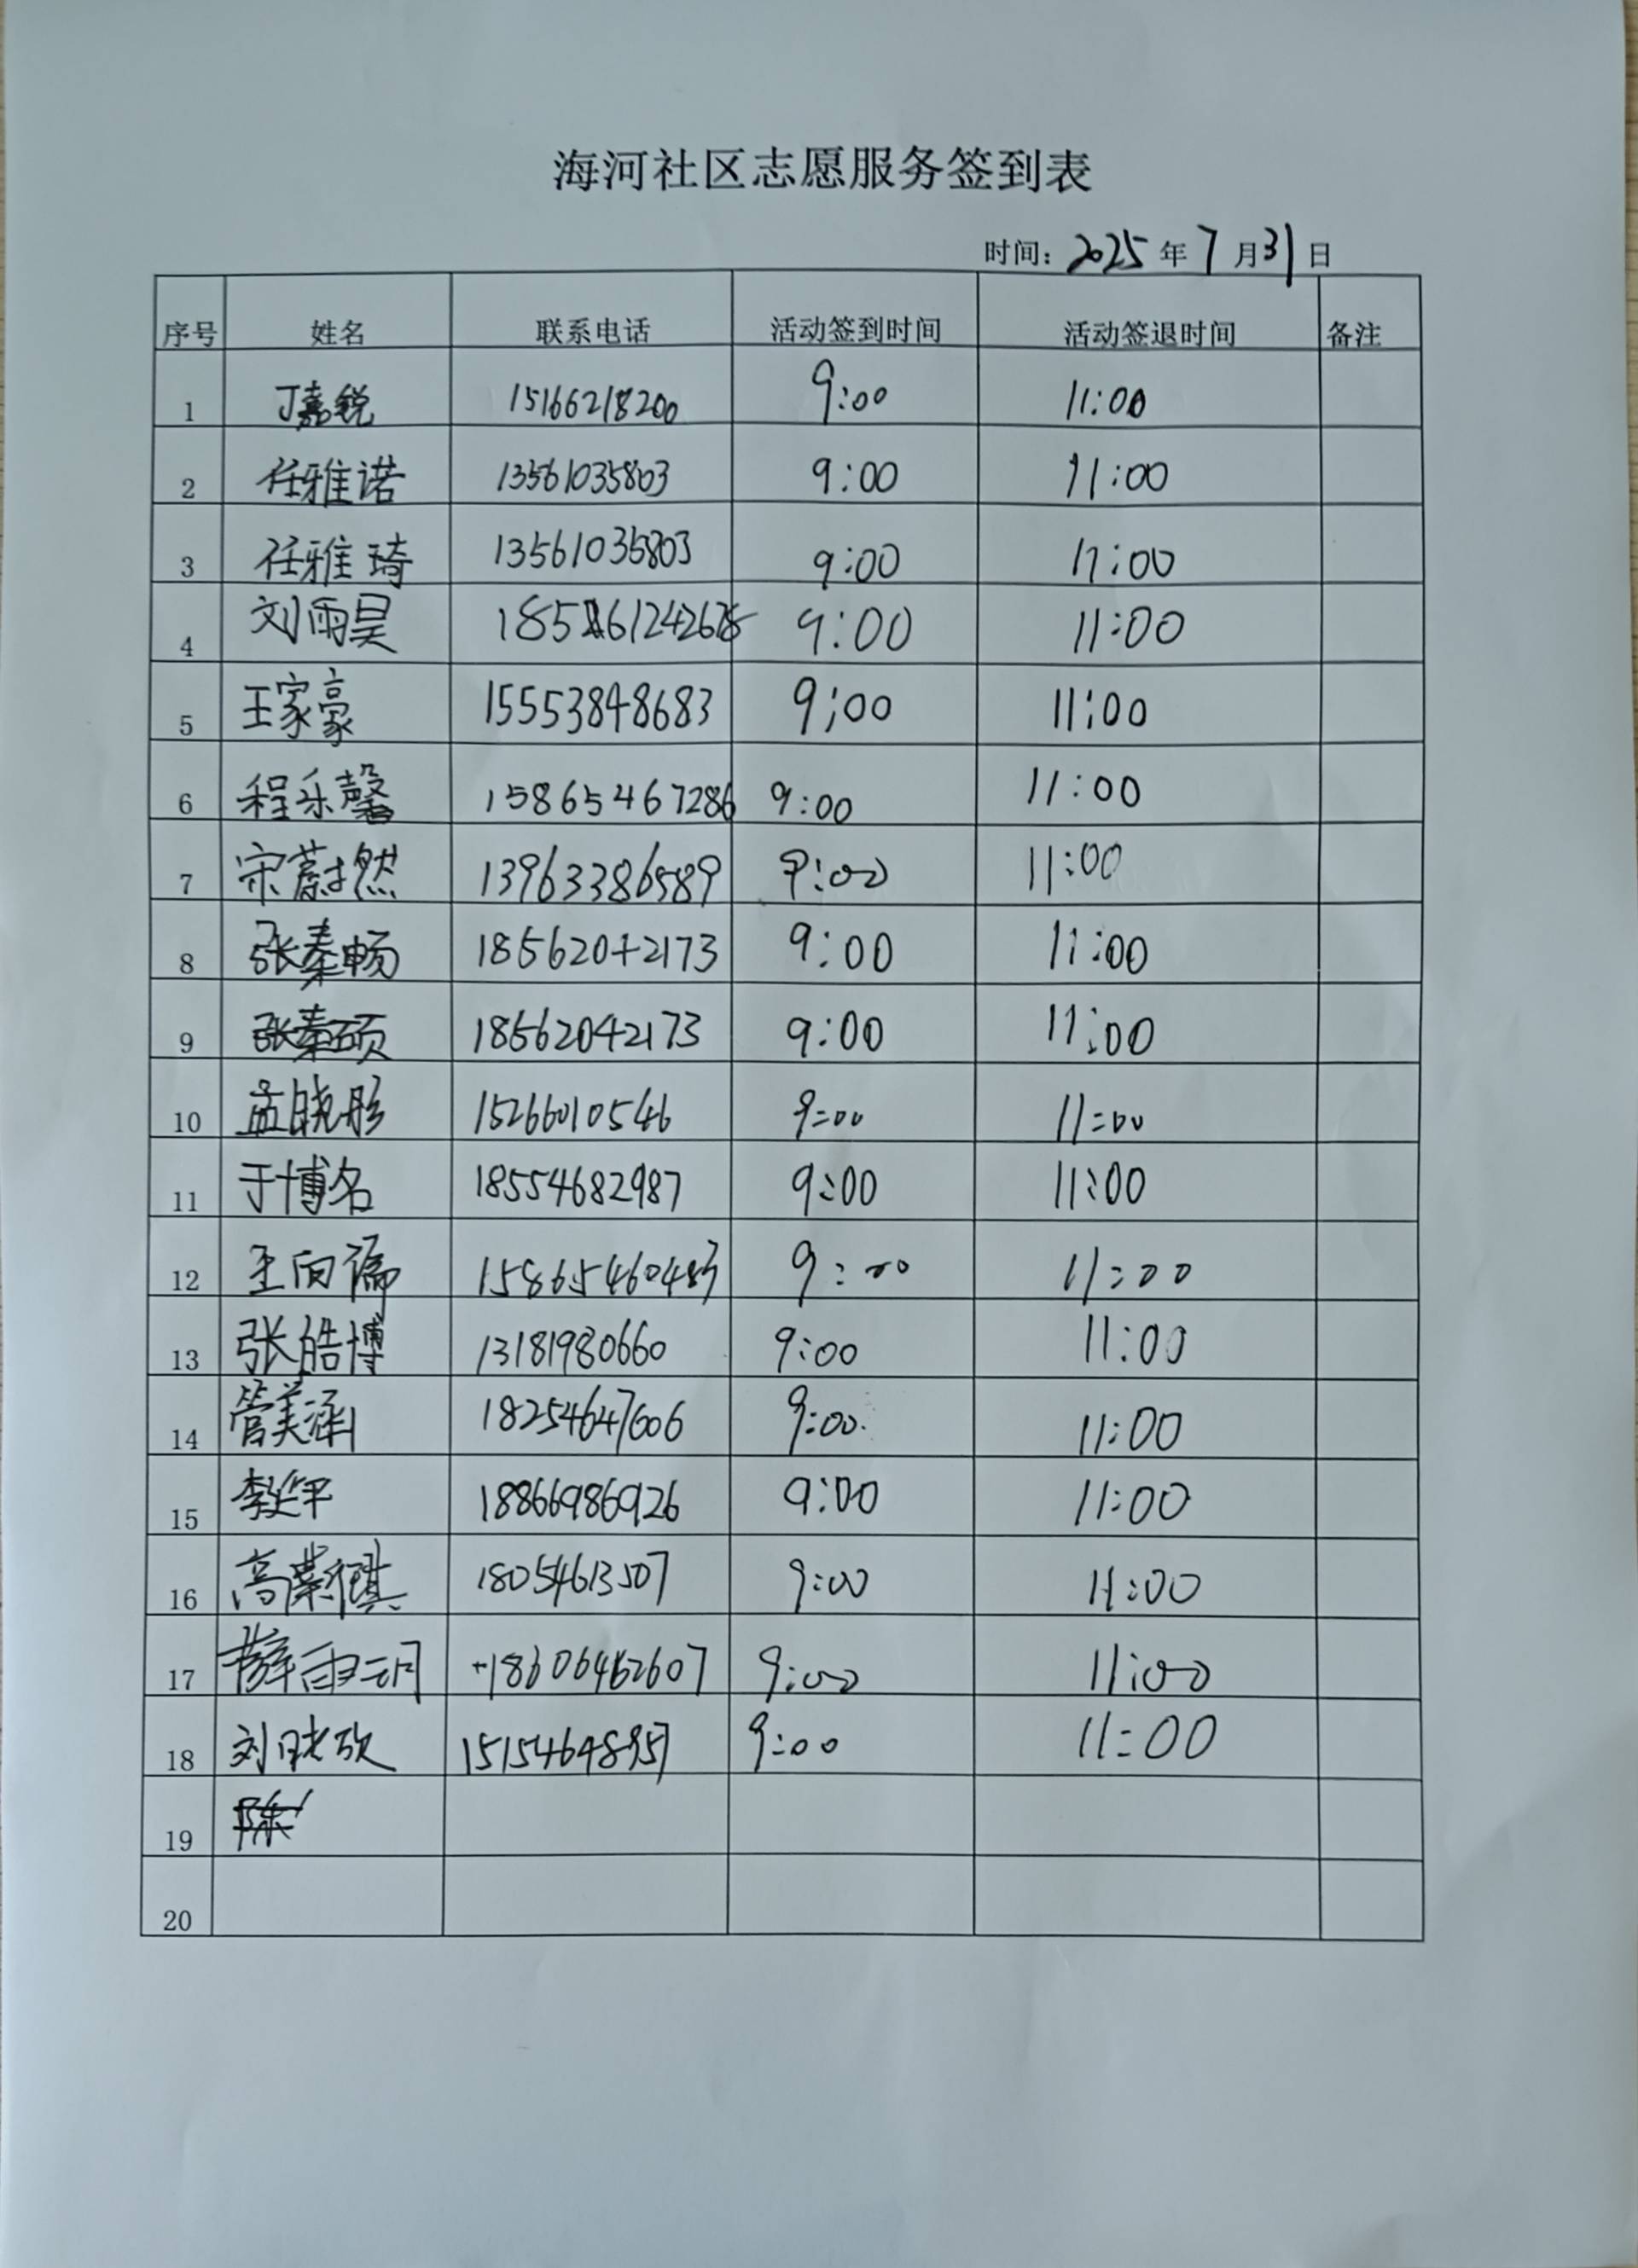 海河社区志愿服务签到表
时间：2025年7月31日
序号 姓名 联系电话 活动签到时间 活动签退时间 备注
1 丁嘉锐 15166218200 9:00 11:00
2 任雅诺 13561035803 9:00 11:00
3 任雅琦 13561035803 9:00 11:00
4 刘雨昊 9:00 11:00
5 王家豪 15553848683 9:00 11:00
6 程乐馨 15865467286 9:00 11:00
7 宋蔚然 13963386589 9:00 11:00
8 张秦畅 18562042173 9:00 11:00
9 张秦硕 18562042173 9:00 11:00
10 孟晓彤 15266010546 9:00 11:00
11 于博名 18554682987 9:00 11:00
12 王向 15865460483 9:00 11:00
13 张皓博 13181980660 9:00 11:00
14 管美涵 18254647606 9:00 11:00
15 李延平 18866986926 9:00 11:00
16 高 18054613507 9:00 11:00
17 薛雨玥 18606462607 9:00 11:00
18 刘晓欣 15154648957 9:00 11:00
19
20